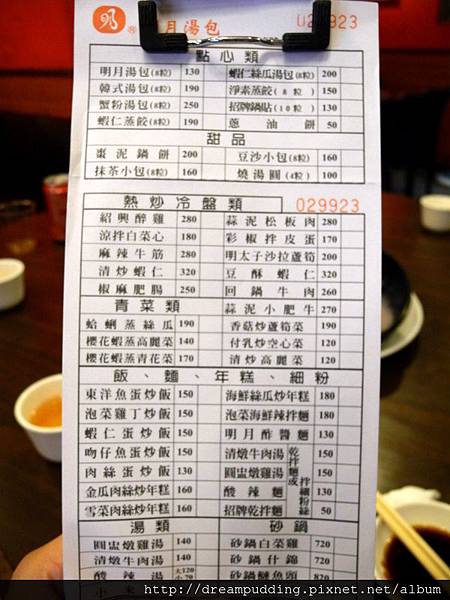 明月湯包 029923
點心類
明月湯包(8粒) 130 蝦仁絲瓜湯包(8粒) 200
韓式湯包(8粒) 190 淨素蒸餃(8粒) 150
蟹粉湯包(8粒) 250 招牌鍋貼(10粒) 130
蝦仁蒸餃(8粒) 190 蔥油餅 50
甜品
棗泥鍋餅 200 豆沙小包(8粒) 160
抹茶小包(8粒) 160 燒湯圓(4粒) 100
熱炒冷盤類 029923
紹興醉雞 280 蒜泥松板肉 280
涼拌白菜心 180 彩椒拌皮蛋 170
麻辣牛筋 280 明太子沙拉蘆筍 200
清炒蝦仁 320 豆酥蝦仁 320
椒麻肥腸 250 回鍋牛肉 260
青菜類 蒜泥小肥牛 270
蛤蜊蒸絲瓜 190 香菇炒蘆筍菜 190
櫻花蝦蒸高麗菜 140 付乳炒空心菜 120
櫻花蝦蒸青花菜 170 清炒高麗菜 120
飯、麵、年糕、細粉
東洋魚蛋炒飯 150 海鮮絲瓜炒年糕 180
泡菜雞丁炒飯 150 泡菜海鮮辣拌麵 180
蝦仁蛋炒飯 150 明月酢醬麵 130
吻仔魚蛋炒飯 150 清燉牛肉湯 150
肉絲蛋炒飯 130 圓盅燉雞湯 150
金瓜肉絲炒年糕 160 酸辣麵 130
雪菜肉絲炒年糕 160 招牌乾拌麵 50
湯類 砂鍋
圓盅燉雞湯 140 砂鍋白菜雞 720
清燉牛肉湯 140 砂鍋什錦 720
酸辣湯 大120 小70 砂鍋鰱魚頭 820
http://dreampudding.pixnet.net/album